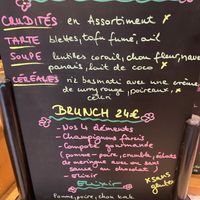 CRUDITÉS en Assortiment *
TARTE blettes, tofu fumé, ail
SOUPE lentilles corail, chou fleur, navet
panais, lait de coco *
CÉRÉALES riz basmati avec une crème
de curry rouge, poireaux,
céleri *
BRUNCH 24€
- Nos 4 éléments
- Champignons farcis
- Compote gourmande
(pomme-poire, crumble, éclats
de meringue avec ou sans
sauce au chocolat)
- Elixir
* sans
gluten
Elixir
Pomme, poire, chou kale